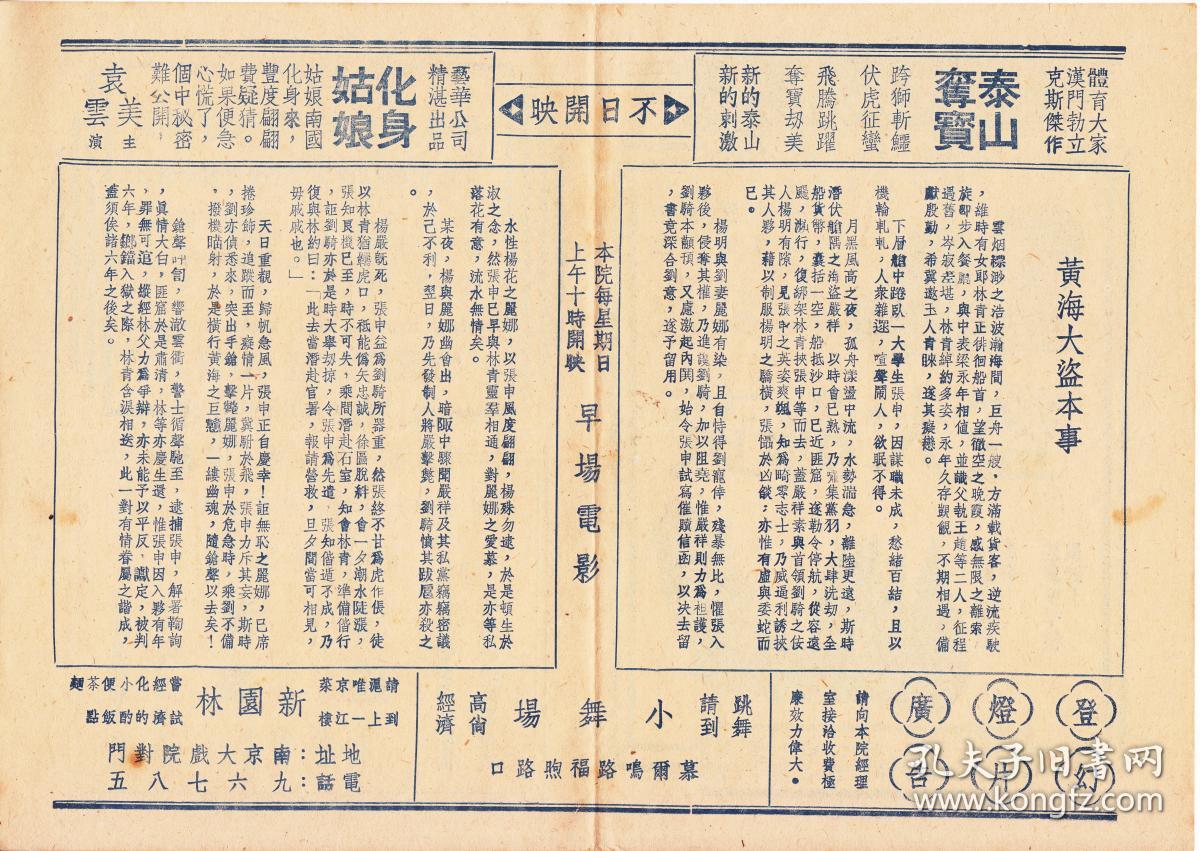 體育大家
漢門勃立
克斯傑作
泰山
奪寶
跨獅斬鱷
伏虎征蠻
飛騰跳躍
奪寶劫美
新的泰山
新的刺激
不日開映
藝華公司
精湛出品
化身
姑娘
姑娘南國
化身來,
豐度翩翩
費疑猜。
如果便急
心慌了,
個中秘密
難公開,
袁美雲
主演
黃海大盜本事
雲烟縹渺之浩波瀚海間,巨舟一艘,方滿載貨客,逆流疾駛
,維時有女郎林青正徘徊船首,望徹空之晚霞,感無限之離索
旋即步入餐廳,與中表梁永年相值,並識父執王趙等二人,征程
遇舊,岑寂差堪,林青綽約多姿,永年久存覬覦,不期相遇,備
獻殷勤,希冀邀玉人青睞,遂其癡戀。
下層艙中踡臥一大學生張申,因謀職未成,愁緒百結,且以
機輪軋軋,人衆雜遝,喧聲鬧人,欲眠不得。
月黑風高之夜,孤舟漾盪中流,水勢湍急,離陸更遠,斯時
潛伏艙隅之海盜嚴祥,以時會已熟,乃嘯集黨羽,大肆洗刧,全
船貨幣,囊括一空,船抵沙口,已近匪窟,遂勒令停航,從容遠
颺,瀕行,復綁架林青挾張申等而去,蓋嚴祥素與首領劉騎之伎
人楊明有隙,見張申之英姿爽颯,知為畸零志士,乃威逼利誘挾
其人夥,藉以制服楊明之驕橫,張懾於凶燄,亦惟有虛與委蛇而
已。
楊明與劉妻麗娜有染,且自恃得劉寵倖,殘暴無比,懼張入
夥後,侵奪其權,乃進讒劉騎,加以阻堯,惟嚴祥則力為袒護,
劉騎本顢頇,又慮激起內鬨,始令張申試寫催贖信函,以决去留
,書竟深合劉意,遂予留用。
本院每星期日
上午十時開映
早場電影
水性楊花之麗娜,以張申風度翩翩,楊殊勿逮,於是頓生於
淑之念,然張申已早與林青靈羣相通,對麗娜之愛慕,是亦等私
落花有意,流水無情矣。
某夜,楊與麗娜幽會出,暗陬中驟聞嚴祥及其私黨竊竊密議
,於己不利,翌日,乃先發制人將嚴擊斃,劉騎憤其跋扈亦殺之
。
楊嚴旣死,張申益為劉騎所器重,然張終不甘為虎作倀,徒
以林青猶纚虎口,秪能偽矢忠誠,徐圖脫絆,會一夕潮水陡漲,
張知良機已至,時不可失,乘間潛赴石室,知會林青,準備偕行
,詎劉騎亦於是時大舉刧掠,令張申為先遣,張知偕遁不成,乃
復與林約曰:「此去當潛赴官署,報請營救,旦夕間當可相見,
毋戚戚也。」
天日重觀,歸帆急風,張申正自慶幸!詎無恥之麗娜,已席
捲珍飾,追踪而至,癡情一片,冀盼於飛,張申力斥其妄,斯時
,劉亦偵悉來,突出手鎗,擊斃麗娜,張申於危急時,乘劉不備
,撥機瞄射,於是橫行黃海之巨戇,一縷幽魂,隨鎗聲以去矣!
鎗聲砰訇,響澈雲衢,警士循聲馳至,逮捕張申,解署鞫詢
,真情大白,匪窟於是肅清,林等亦慶生還,惟張申因入夥有年
,罪無可逭,縱經林父力為爭辯,亦未能予以平反,讞定,被判
六年,鎯鐺入獄之際,林青含淚相送,此一對有情眷屬之諧成,
蓋須俟諸六年之後矣。
登幻
燈片
廣告
請向本院經理
室接洽收費極
廉效力偉大。
跳舞
請到
小舞場
高尙
經濟
慕爾鳴路福煦路口
請到
滬上
唯一
京江
菜樓
新園林
嘗試
經濟
化的
小酌
便飯
茶點
麵
地址:南京大戲院對門
電話:九六七八五
孔夫子旧书网
www.kongfz.com